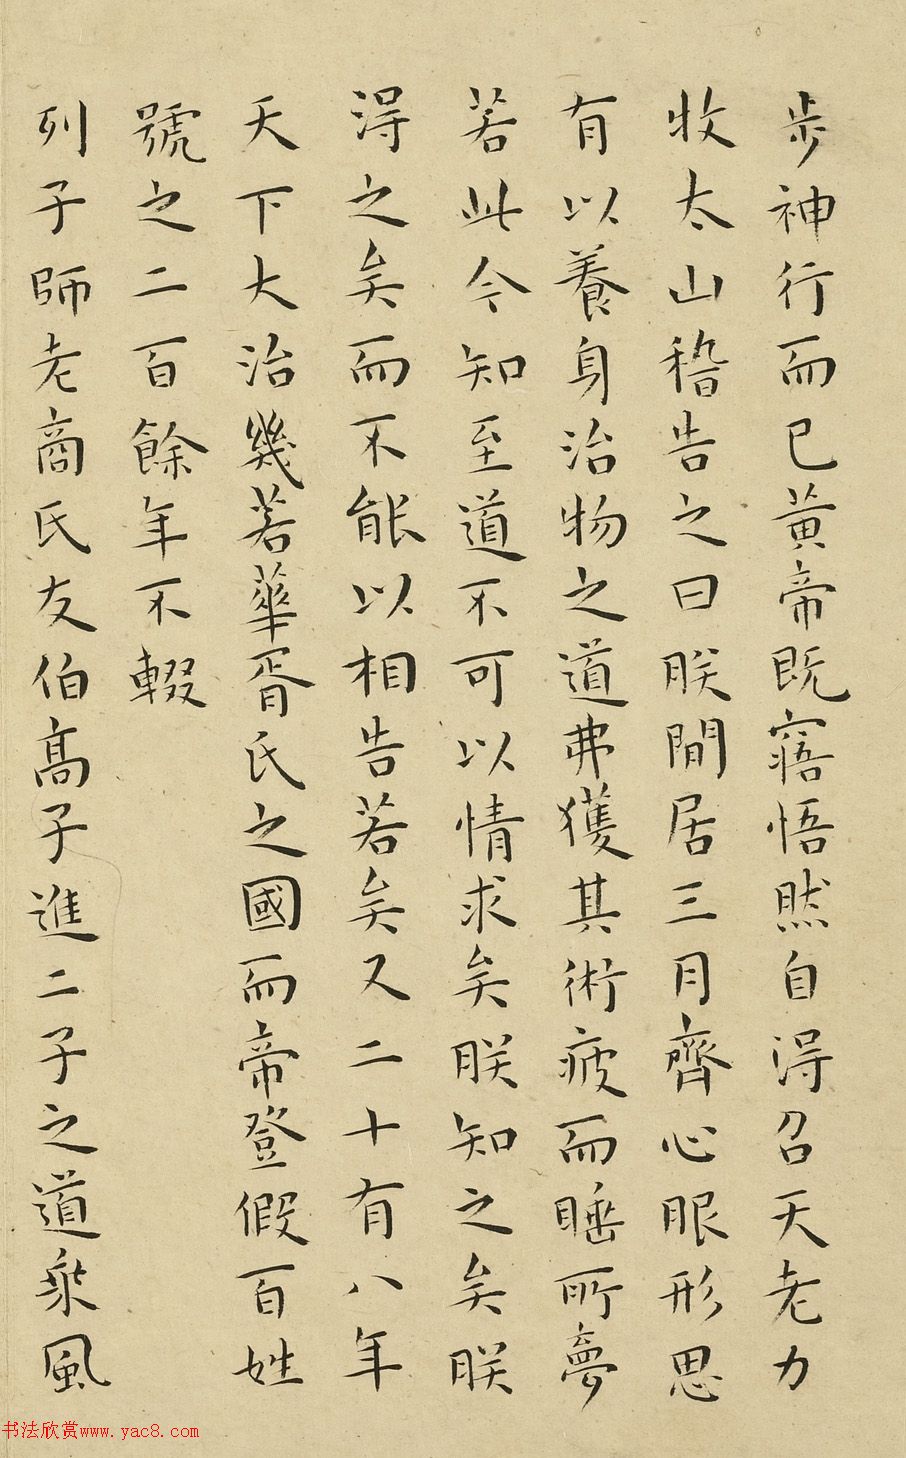 步神行而已黃帝既寤悟然自得召天老力
收太山稽告之曰朕閒居三月齊心眼形思
有以養身治物之道弗獲其術疲而睡所夢
若此今知至道不可以情求矣朕知之矣朕
得之矣而不能以相告若矣又二十有八年
天下大治幾若華胥氏之國而帝登假百姓
號之二百餘年不輟
列子師老商氏友伯高子進二子之道乘風
书法欣赏www.yac8.com